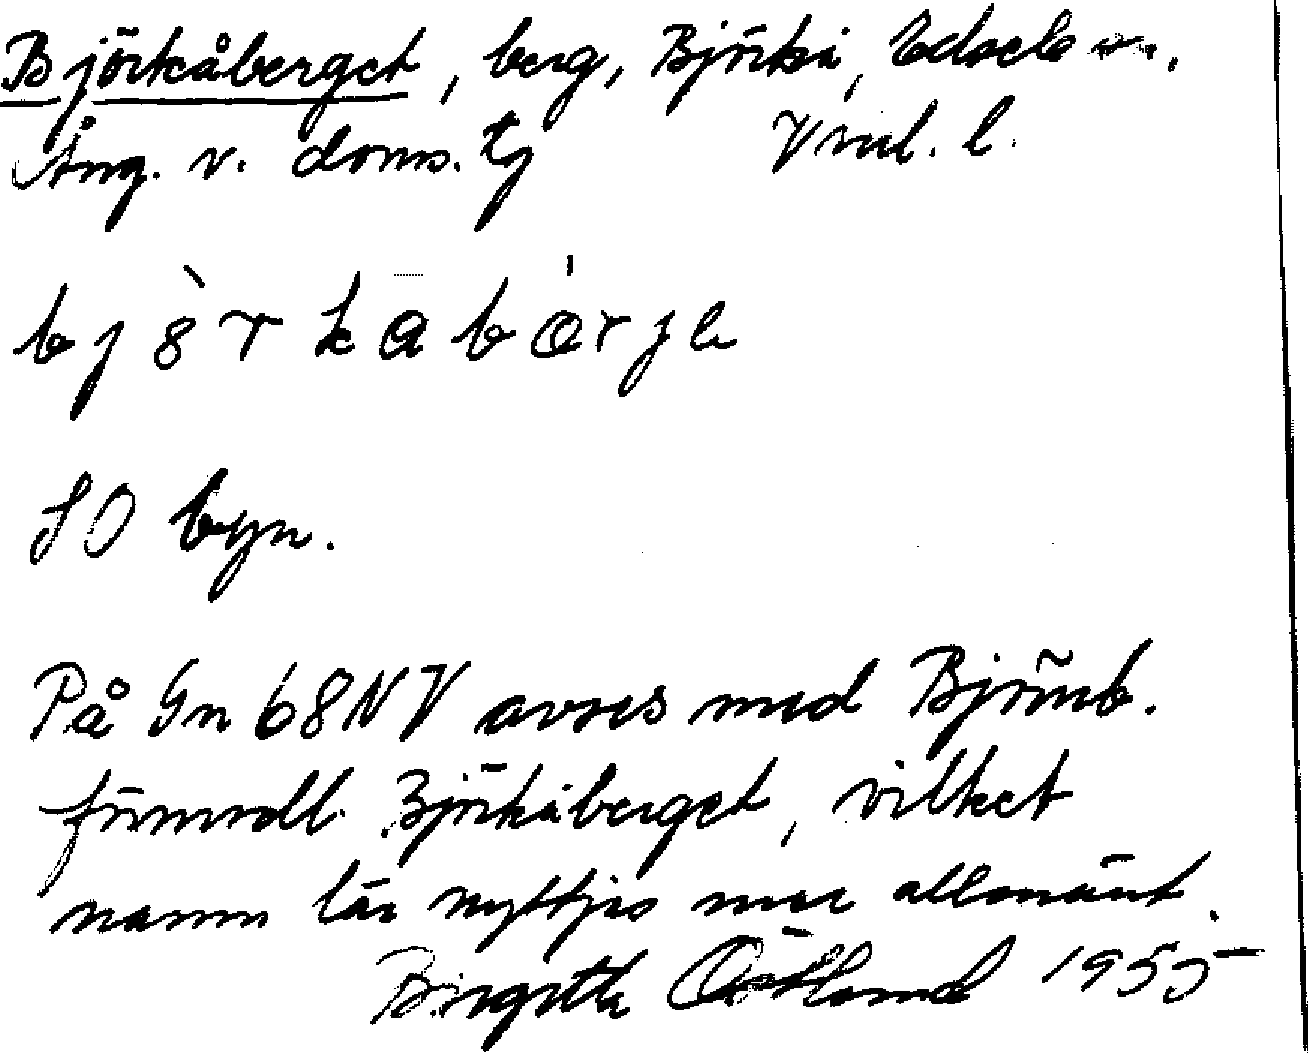 Björkåberget, berg, Björkå, Edsele sn.
Ång. v. doms. tg Vml. l.
bj8̀rkābɑ́rʒe
SO byn.
På Gn 68NV avses med Björnb.
förmodl. Björkåberget, vilket
namn lär nyttjas mer allmänt.
Birgitta Östlund 1955